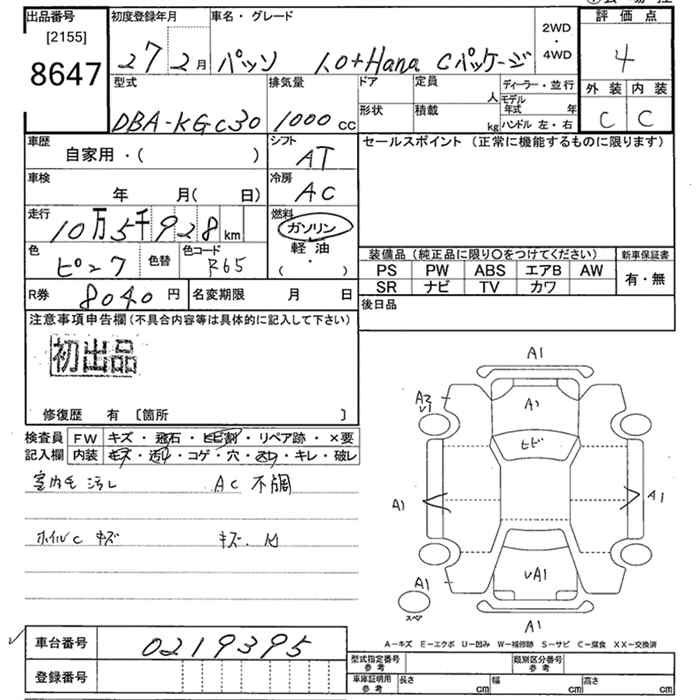 出品番号
[2155]
8647
初度登録年月
27 2月
車名・グレード
パッソ 1.0+Hana Cパッケージ
2WD
・
4WD
評価点
4
外装 内装
C C
型式
DBA-KGC30
排気量
1000 cc
ドア
定員
人
形状
積載
kg
ディーラー・並行
モデル年式 年
ハンドル 左・右
車歴
自家用・( )
シフト
AT
セールスポイント (正常に機能するものに限ります)
車検
年 月( 日)
冷房
AC
走行
10万5千928 km
燃料
ガソリン
軽油
( ・ )
色
ピンク
色替
色コード
R65
装備品 (純正品に限り〇をつけてください)
新車保証書
PS PW ABS エアB AW
有・無
SR ナビ TV カワ
R券 8040 円
名変期限 月 日
後日品
注意事項申告欄 (不具合内容等は具体的に記入して下さい)
初出品
修復歴 有 [箇所 ]
検査員
記入欄
FW キズ・飛石・ヒビ割・リペア跡・×要
内装 キズ・汚れ・コゲ・穴・スレ・キレ・破レ
室内モ汚レ AC不調
ホイルC キズ キズ・凹
A1
A2
V1
A1
ヒビ
A1
A1
VA1
A1
スペア
A1
A-キズ E-エクボ U-凹み W-補修跡 S-サビ C-腐食 XX-交換済
車台番号 0219395
登録番号
型式指定番号
参考
類別区分番号
参考
車庫証明用
参考
長さ cm 幅 cm 高さ cm